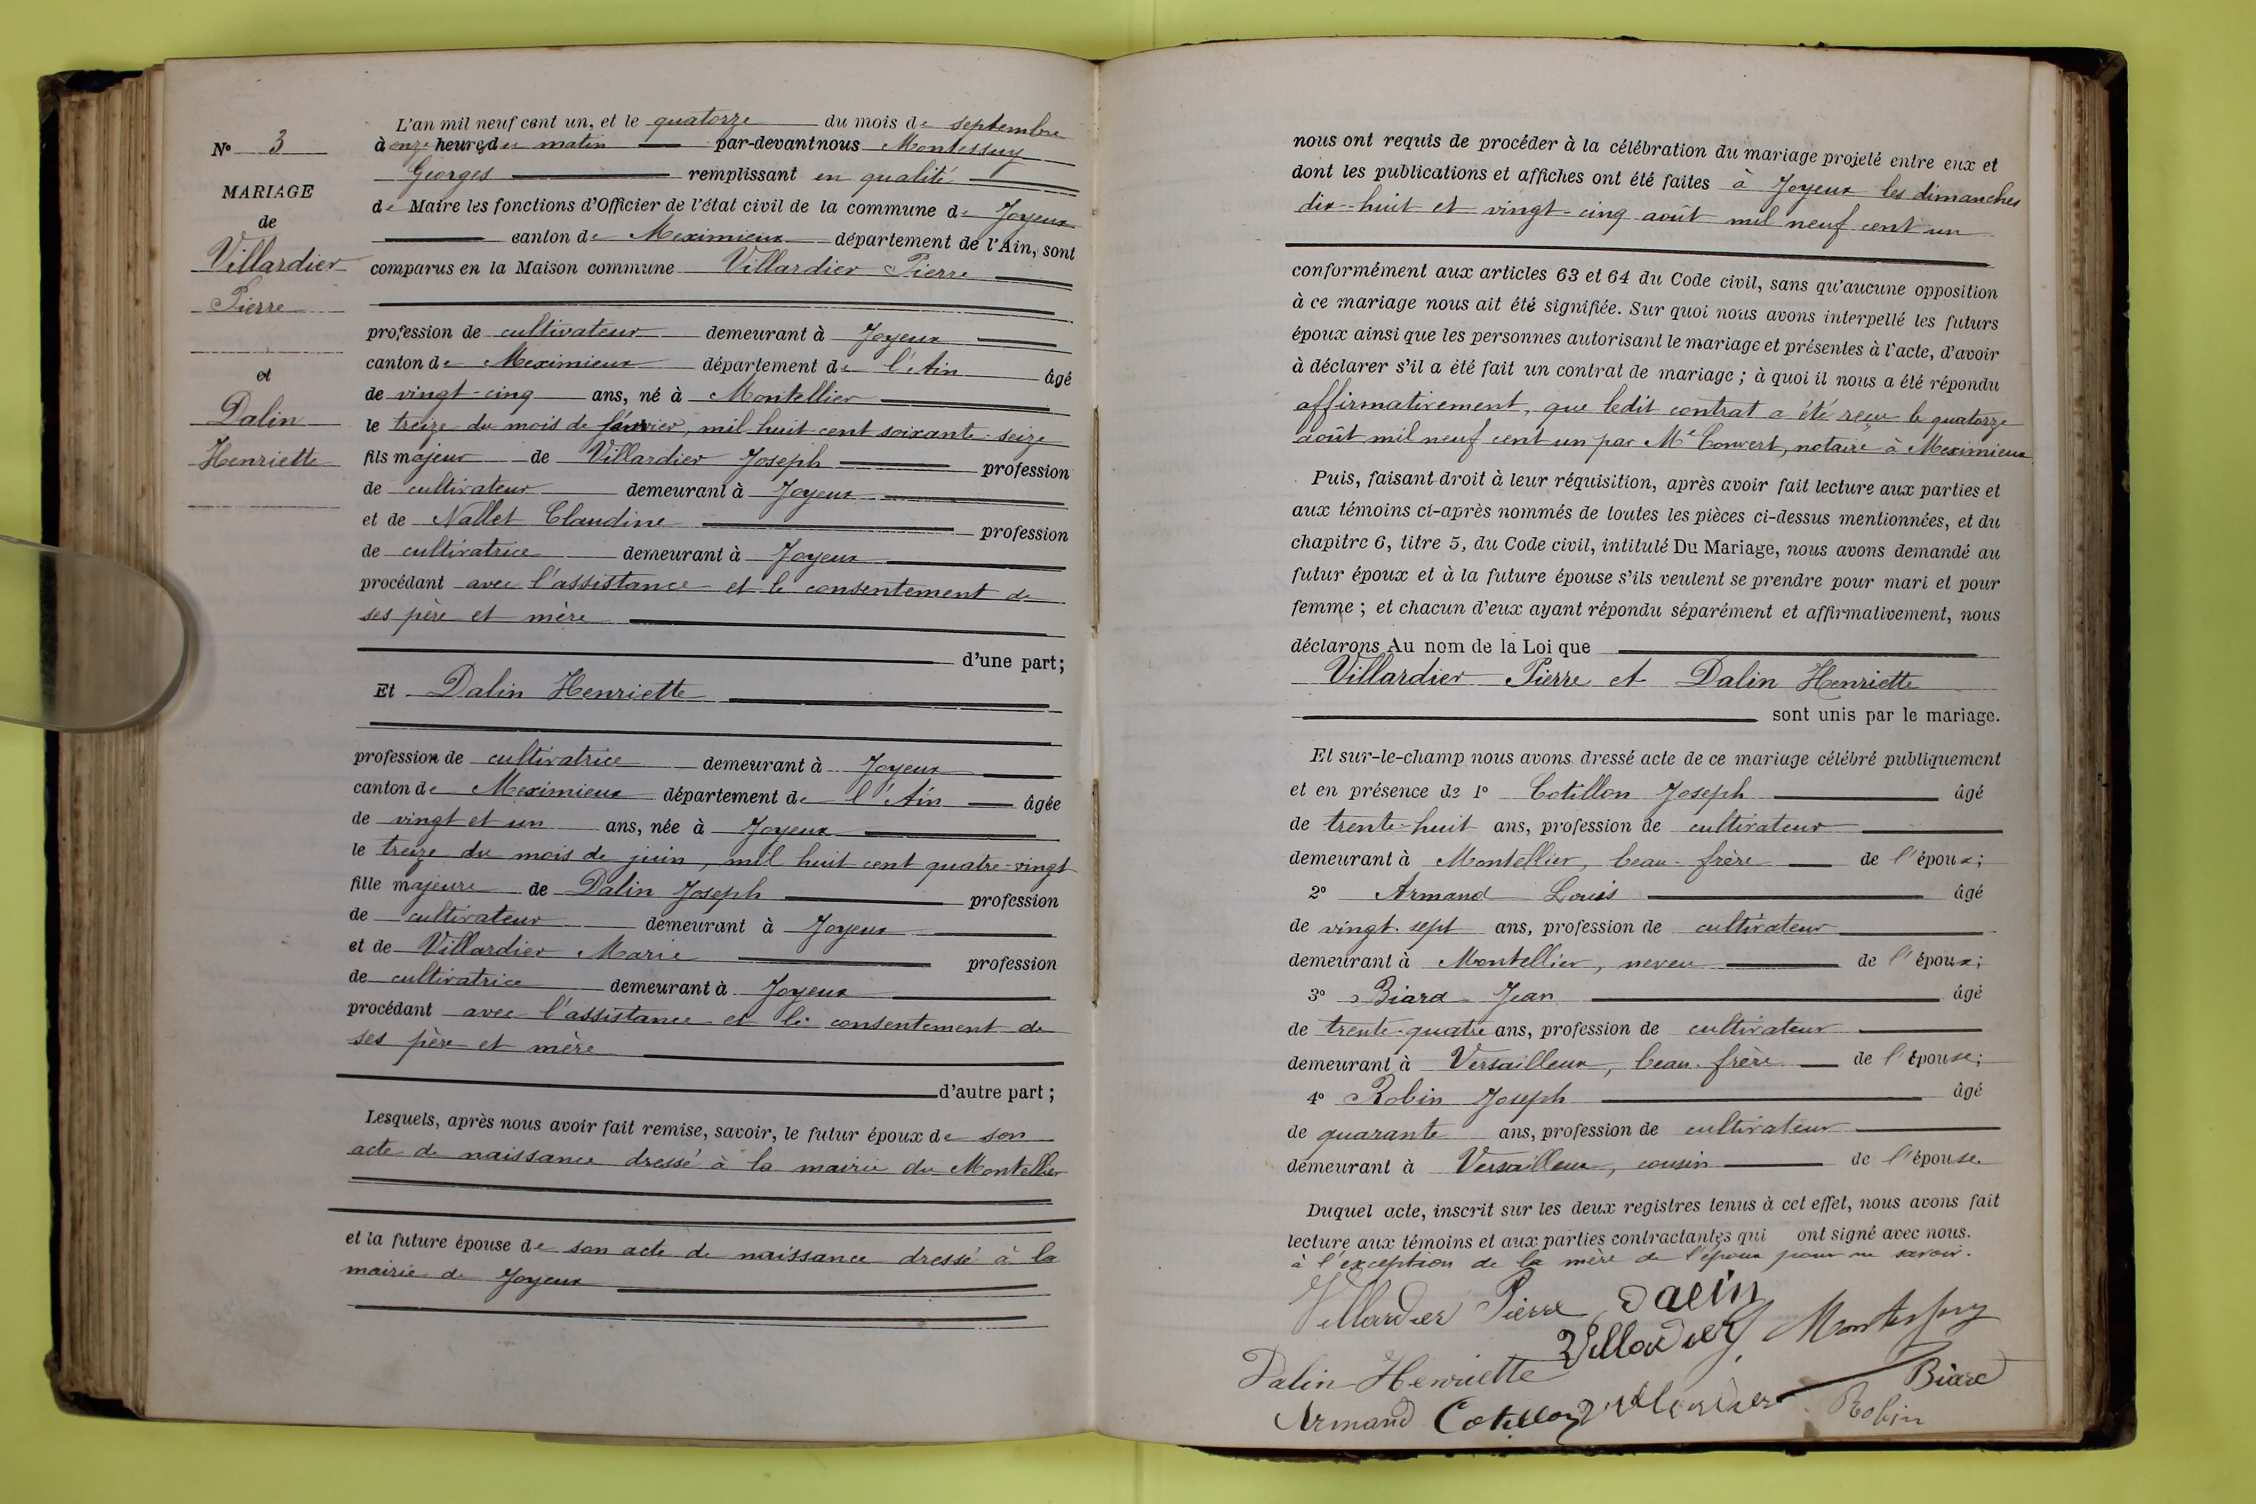 N° 3
MARIAGE
de
Villardier
Pierre
et
Dalin
Henriette
L'an mil neuf cent un, et le quatorze du mois de septembre
à onze heures du matin par-devant nous Montessuy
Georges remplissant en qualité
de Maire les fonctions d'Officier de l'état civil de la commune de Joyeux
canton de Meximieux département de l'Ain, sont
comparus en la Maison commune Villardier Pierre
profession de cultivateur demeurant à Joyeux
canton de Meximieux département de l'Ain âgé
de vingt-cinq ans, né à Montellier
le treize du mois de février, mil huit cent soixante-seize
fils majeur de Villardier Joseph profession
de cultivateur demeurant à Joyeux
et de Nallet Claudine profession
de cultivatrice demeurant à Joyeux
procédant avec l'assistance et le consentement de
ses père et mère
d'une part;
Et Dalin Henriette
profession de cultivatrice demeurant à Joyeux
canton de Meximieux département de l'Ain âgée
de vingt et un ans, née à Joyeux
le treize du mois de juin, mil huit cent quatre-vingt
fille majeure de Dalin Joseph profession
de cultivateur demeurant à Joyeux
et de Villardier Marie profession
de cultivatrice demeurant à Joyeux
procédant avec l'assistance et le consentement de
ses père et mère
d'autre part;
Lesquels, après nous avoir fait remise, savoir, le futur époux de son
acte de naissance dressé à la mairie du Montellier
et la future épouse de son acte de naissance dressé à la
mairie de Joyeux
nous ont requis de procéder à la célébration du mariage projeté entre eux et
dont les publications et affiches ont été faites à Joyeux les dimanches
dix-huit et vingt-cinq août mil neuf cent un
conformément aux articles 63 et 64 du Code civil, sans qu'aucune opposition
à ce mariage nous ait été signifiée. Sur quoi nous avons interpellé les futurs
époux ainsi que les personnes autorisant le mariage et présentes à l'acte, d'avoir
à déclarer s'il a été fait un contrat de mariage; à quoi il nous a été répondu
affirmativement, que ledit contrat a été reçu le quatorze
août mil neuf cent un par Me Convert, notaire à Meximieux
Puis, faisant droit à leur réquisition, après avoir fait lecture aux parties et
aux témoins ci-après nommés de toutes les pièces ci-dessus mentionnées, et du
chapitre 6, titre 5, du Code civil, intitulé Du Mariage, nous avons demandé au
futur époux et à la future épouse s'ils veulent se prendre pour mari et pour
femme; et chacun d'eux ayant répondu séparément et affirmativement, nous
déclarons Au nom de la Loi que
Villardier Pierre et Dalin Henriette
sont unis par le mariage.
Et sur-le-champ nous avons dressé acte de ce mariage célébré publiquement
et en présence de 1° Cotillon Joseph âgé
de trente-huit ans, profession de cultivateur
demeurant à Montellier, beau-frère de l'époux;
2° Armand Louis âgé
de vingt-sept ans, profession de cultivateur
demeurant à Montellier, neveu de l'époux;
3° Biard Jean âgé
de trente-quatre ans, profession de cultivateur
demeurant à Versailleux, beau-frère de l'épouse;
4° Robin Joseph âgé
de quarante ans, profession de cultivateur
demeurant à Versailleux, cousin de l'épouse.
Duquel acte, inscrit sur les deux registres tenus à cet effet, nous avons fait
lecture aux témoins et aux parties contractantes qui ont signé avec nous.
à l'exception de la mère de l'époux pour ne savoir.
Villardier Pierre Dalin
Villardier Montessuy
Dalin Henriette Biard
Armand Cotillon Villardier Robin